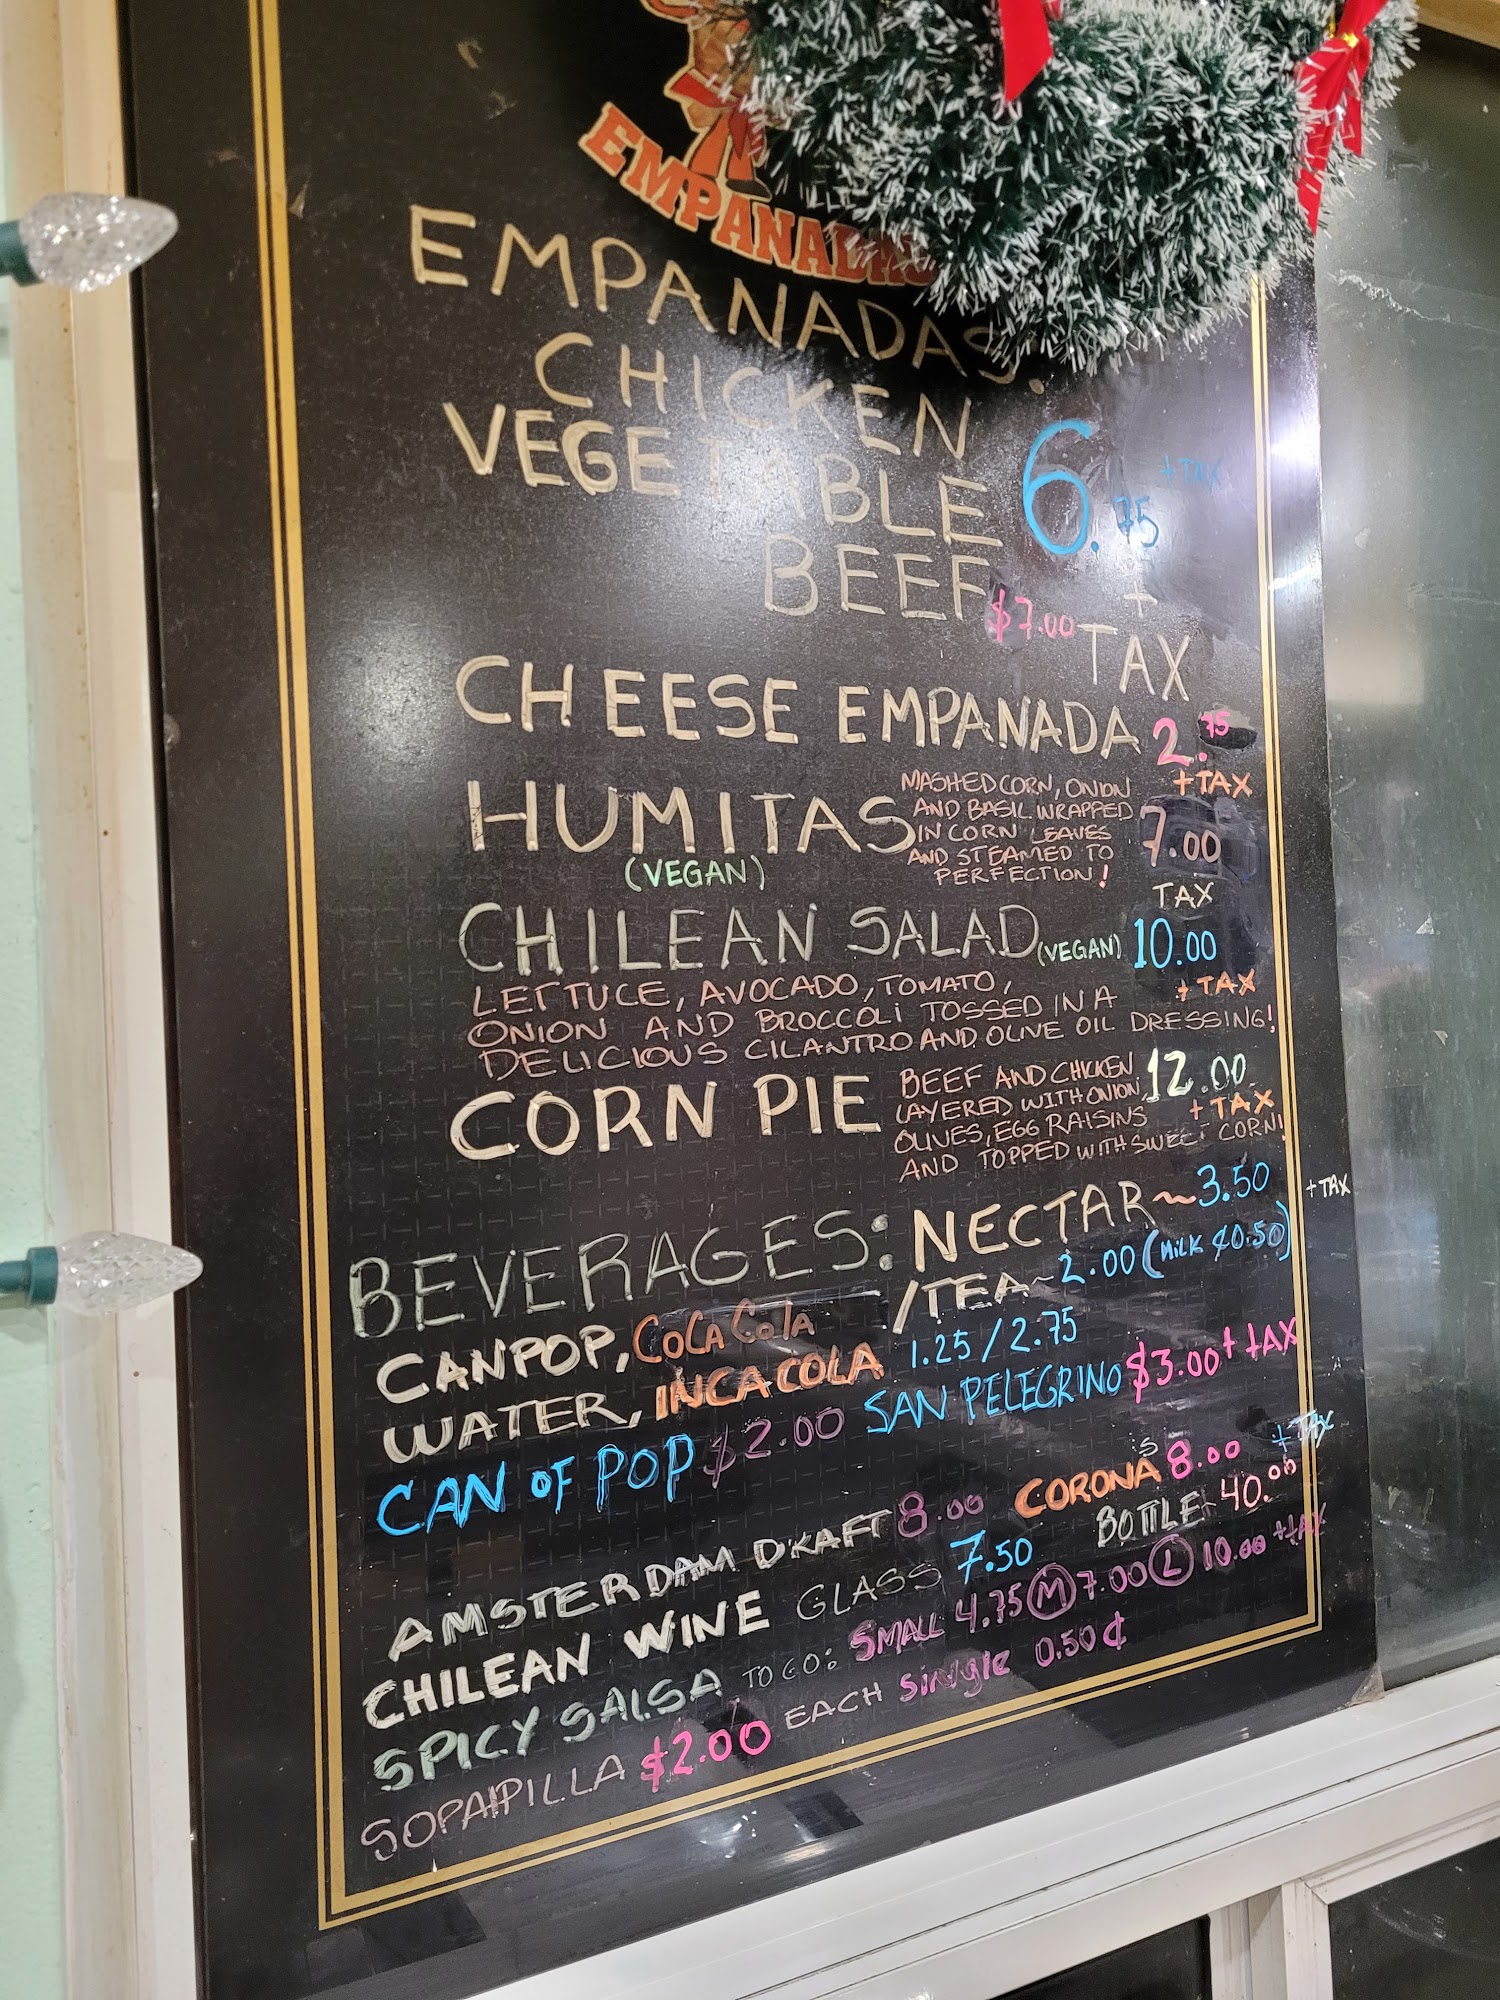 EMPANADAS
EMPANADAS:
CHICKEN
VEGETABLE 6.75 +TAX
BEEF $7.00 + TAX
CHEESE EMPANADA 2.75
+TAX
HUMITAS MASHED CORN, ONION
AND BASIL WRAPPED
IN CORN LEAVES 7.00
AND STEAMED TO
(VEGAN) PERFECTION!
TAX
CHILEAN SALAD (VEGAN) 10.00
+TAX
LETTUCE, AVOCADO, TOMATO,
ONION AND BROCCOLI TOSSED IN A
DELICIOUS CILANTRO AND OLIVE OIL DRESSING!
CORN PIE BEEF AND CHICKEN 12.00
LAYERED WITH ONION, +TAX
OLIVES, EGG RAISINS
AND TOPPED WITH SWEET CORN!
BEVERAGES: NECTAR ~ 3.50 +TAX
/TEA ~ 2.00 (MILK $0.50)
CANPOP, COCA COLA
WATER, INCA COLA 1.25/2.75
CAN OF POP $2.00 SAN PELEGRINO $3.00 + TAX
AMSTERDAM DRAFT 8.00 CORONA'S 8.00 + TAX
CHILEAN WINE GLASS 7.50 BOTTLE 40.00
SPICY SALSA TO GO: SMALL 4.75 M 7.00 L 10.00 +TAX
SOPAIPILLA $2.00 EACH single 0.50¢